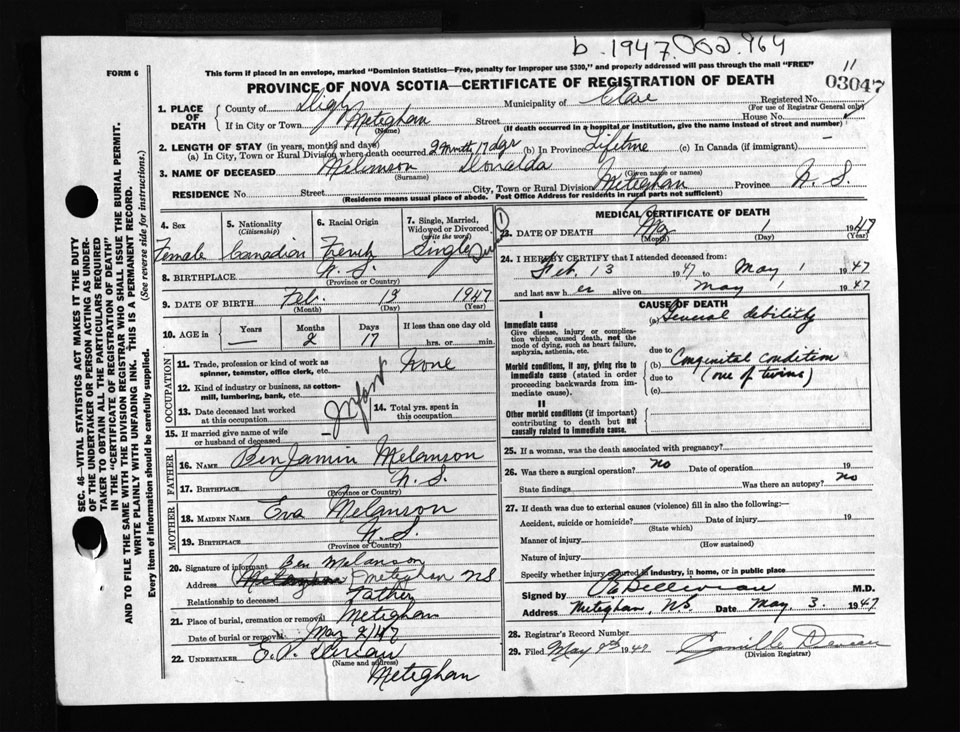 b. 1947. 964
FORM 6
This form if placed in an envelope, marked "Dominion Statistics—Free, penalty for improper use $300," and properly addressed will pass through the mail "FREE"
11
03047
PROVINCE OF NOVA SCOTIA—CERTIFICATE OF REGISTRATION OF DEATH
1. PLACE OF DEATH
County of Digby Municipality of Clare Registered No.
(For use of Registrar General only)
If in City or Town Meteghan Street House No.
(Name) (If death occurred in a hospital or institution, give the name instead of street and number)
2. LENGTH OF STAY (in years, months and days)
(a) In City, Town or Rural Division where death occurred 2 Months 17 dys (b) In Province Lifetime (c) In Canada (if immigrant) —
3. NAME OF DECEASED Melanson Donalda
(Surname) (Given name or names)
RESIDENCE No. Street City, Town or Rural Division Meteghan Province N. S.
(Residence means usual place of abode. Post Office Address for residents in rural parts not sufficient)
4. Sex
Female
5. Nationality
(Citizenship)
Canadian
6. Racial Origin
French
7. Single, Married, Widowed or Divorced
(write the word)
Single
8. BIRTHPLACE N. S.
(Province or Country)
9. DATE OF BIRTH Feb. 13 1947
(Month) (Day) (Year)
10. AGE in Years Months Days If less than one day old
— 2 17 hrs. or min.
OCCUPATION
11. Trade, profession or kind of work as spinner, teamster, office clerk, etc. None
12. Kind of industry or business, as cotton-mill, lumbering, bank, etc.
13. Date deceased last worked at this occupation
14. Total yrs. spent in this occupation
Infant
15. If married give name of wife or husband of deceased —
FATHER
16. NAME Benjamin Melanson
17. BIRTHPLACE N. S.
(Province or Country)
MOTHER
18. MAIDEN NAME Eva Melanson
19. BIRTHPLACE N. S.
(Province or Country)
20. Signature of informant Ben Melanson
Address Meteghan NS
Relationship to deceased Father
21. Place of burial, cremation or removal Meteghan
Date of burial or removal May 2/47
22. UNDERTAKER
(Name and address)
Meteghan
1
MEDICAL CERTIFICATE OF DEATH
23. DATE OF DEATH May 1 1947
(Month) (Day) (Year)
24. I HEREBY CERTIFY that I attended deceased from:
Feb. 13 1947 to May 1 1947
and last saw her alive on May 1 1947
CAUSE OF DEATH
I
Immediate cause
Give disease, injury or complication which caused death, not the mode of dying, such as heart failure, asphyxia, asthenia, etc.
(a) General debility
due to
Morbid conditions, if any, giving rise to immediate cause (stated in order proceeding backwards from immediate cause).
(b) Congenital condition
due to (one of twins)
(c)
II
Other morbid conditions (if important) contributing to death but not causally related to immediate cause.
25. If a woman, was the death associated with pregnancy?
26. Was there a surgical operation? no Date of operation 19
State findings Was there an autopsy? no
27. If death was due to external causes (violence) fill in also the following:—
Accident, suicide or homicide? Date of injury 19
(State which)
Manner of injury
(How sustained)
Nature of injury
Specify whether injury occurred in industry, in home, or in public place
Signed by M.D.
Address Meteghan, NS. Date May 3. 1947
28. Registrar's Record Number
29. Filed May 1947 Camille
(Division Registrar)
SEC. 46—VITAL STATISTICS ACT MAKES IT THE DUTY OF THE UNDERTAKER OR PERSON ACTING AS UNDERTAKER TO OBTAIN ALL THE PARTICULARS REQUIRED IN THE "CERTIFICATE OF REGISTRATION OF DEATH"
AND TO FILE THE SAME WITH THE DIVISION REGISTRAR WHO SHALL ISSUE THE BURIAL PERMIT.
WRITE PLAINLY WITH UNFADING INK. THIS IS A PERMANENT RECORD.
Every item of information should be carefully supplied. (See reverse side for instructions.)